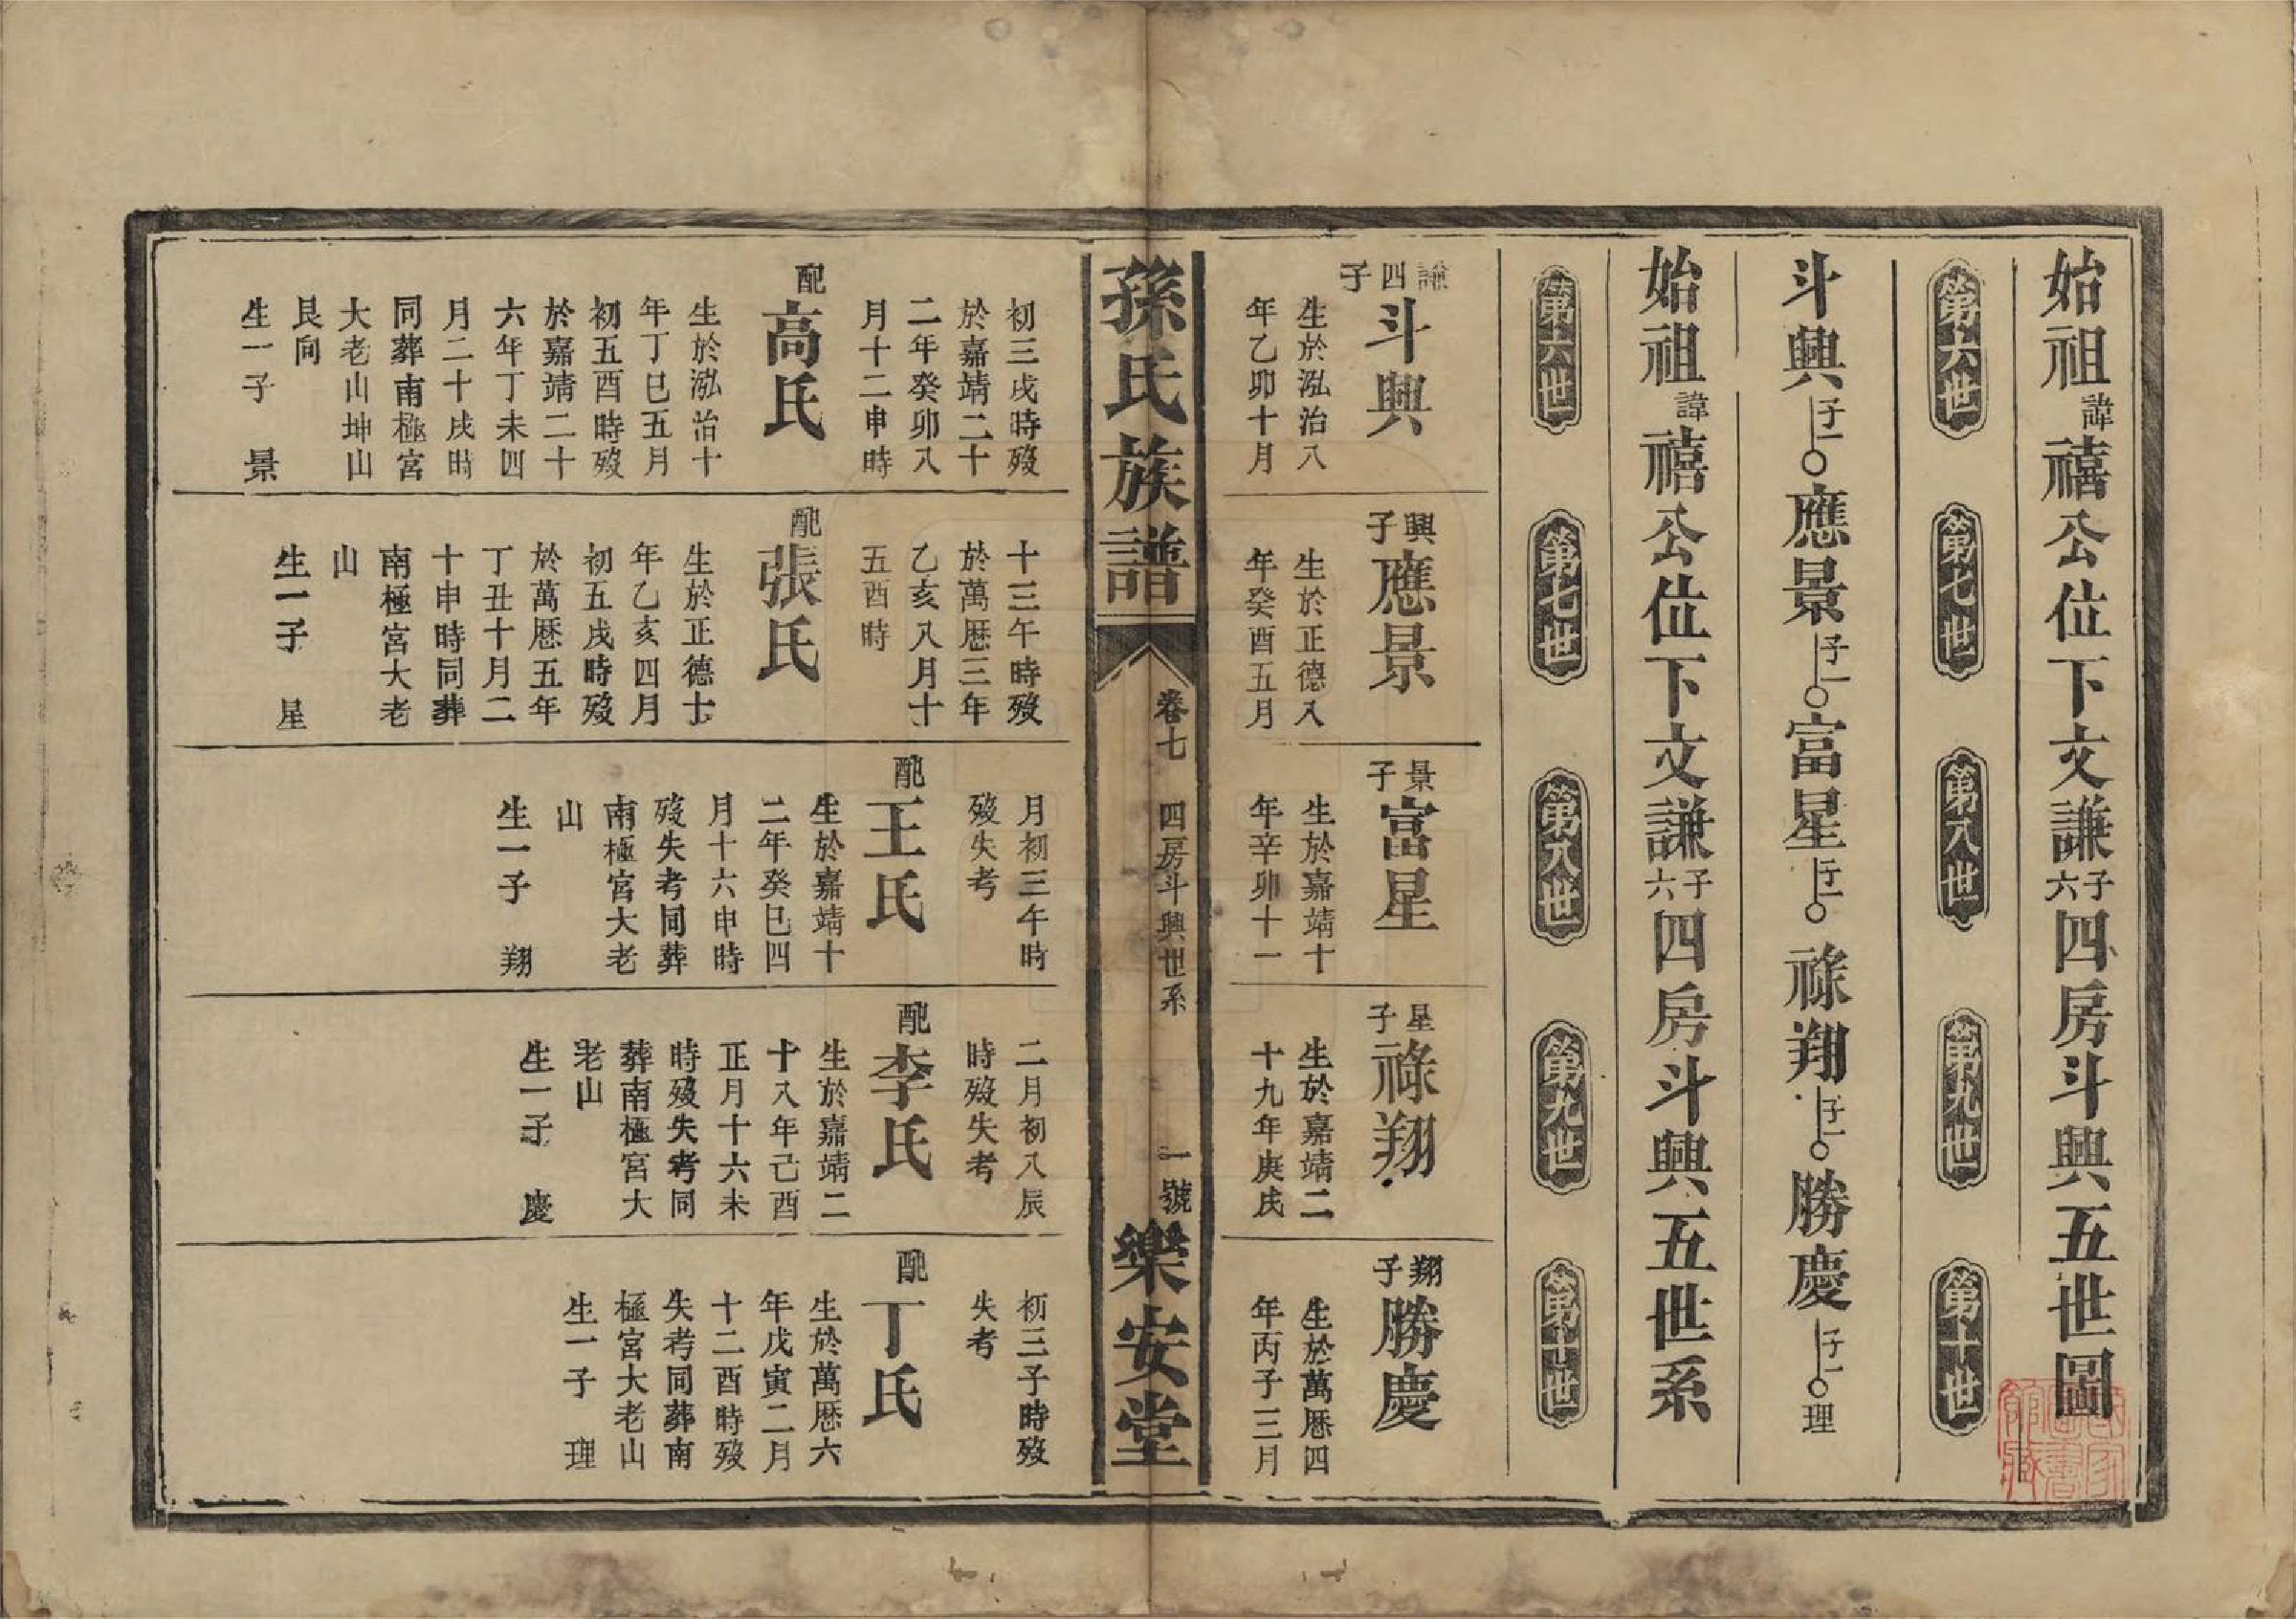 始祖諱禧公位下文謙子六四房斗興五世圖
第六世 第七世 第八世 第九世 第十世
斗興子一應景子一富星子一祿翔子一勝慶子一理
始祖諱禧公位下文謙子六四房斗興五世系
第六世 第七世 第八世 第九世 第十世
謙四子斗興
生於泓治八
年乙卯十月
興子應景
生於正德八
年癸酉五月
景子富星
生於嘉靖十
年辛卯十一
星子祿翔
生於嘉靖二
十九年庚戌
翔子勝慶
生於萬厯四
年丙子三月
孫氏族譜
卷七 四房斗興世系 一號
樂安堂
初三戌時歿
於嘉靖二十
二年癸卯八
月十二申時
配高氏
生於泓治十
年丁巳五月
初五酉時歿
於嘉靖二十
六年丁未四
月二十戌時
同葬南極宮
大老山坤山
艮向
生一子 景
十三午時歿
於萬厯三年
乙亥八月十
五酉時
配張氏
生於正德十
年乙亥四月
初五戌時歿
於萬厯五年
丁丑十月二
十申時同葬
南極宮大老
山
生一子 星
月初三午時
歿失考
配王氏
生於嘉靖十
二年癸巳四
月十六申時
歿失考同葬
南極宮大老
山
生一子 翔
二月初八辰
時歿失考
配李氏
生於嘉靖二
十八年己酉
正月十六未
時歿失考同
葬南極宮大
老山
生一子 慶
初三子時歿
失考
配丁氏
生於萬厯六
年戊寅二月
十二酉時歿
失考同葬南
極宮大老山
生一子 理